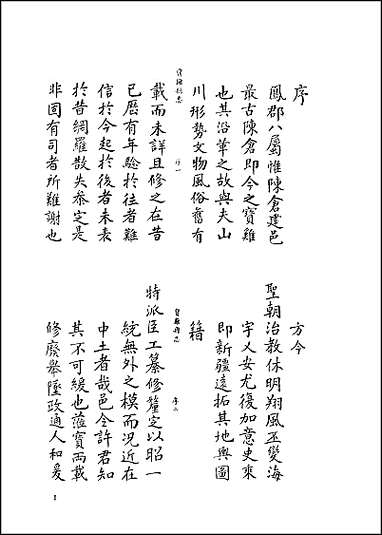 序
鳳郡八屬惟陳倉建邑
最古陳倉即今之寶雞
也其沿革之故與夫山
川形勢文物風俗舊有
寶雞縣志
序一
載而未詳且修之在昔
已歷有年驗於往者難
信於今起於後者未表
於昔網羅散失參定是
非固有司者所難謝也
方今
聖朝治教休明翔風丕變海
宇乂安尤復加意史乘
即新疆遠拓其地輿圖
籍
寶雞縣志
序二
特派臣工纂修釐定以昭一
統無外之模而况近在
中土者哉邑令許君知
其不可緩也蒞寶兩載
修廢舉墜政通人和爰
1